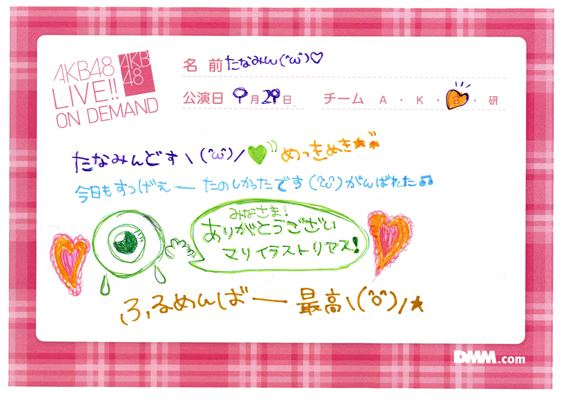 AKB48
LIVE!!
ON DEMAND
AKB
48
名 前 たなみん(^ω^)♡
公演日 9月29日 チーム A・K・B・研
たなみんどす\(^ω^)/💚めっきめき★★
今日もすっげぇー たのしかったです(^ω^)がんばれた♫
みなさま!
ありがとうござい
マリイラストリアス!
ふるめんばー 最高\(^o^)/★
DMM.com